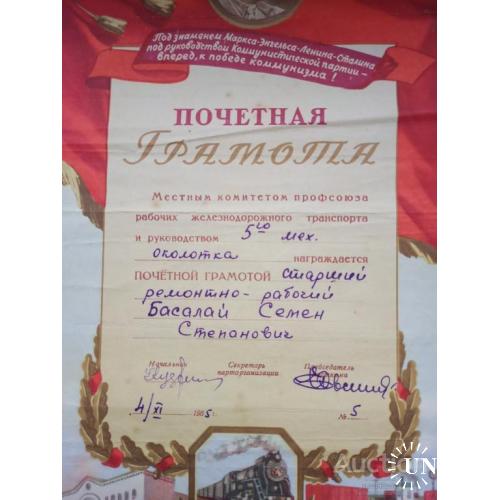 Под знаменем Маркса-Энгельса-Ленина-Сталина
под руководством Коммунистической партии –
вперед, к победе коммунизма!
ПОЧЕТНАЯ
ГРАМОТА
Местным комитетом профсоюза
рабочих железнодорожного транспорта
и руководством 5го мех.
околотка награждается
ПОЧЁТНОЙ ГРАМОТОЙ старший
ремонтно-рабочий
Басалай Семен
Степанович
Начальник Секретарь Председатель
парторганизации
4/XI 1955 г. № 5
UN